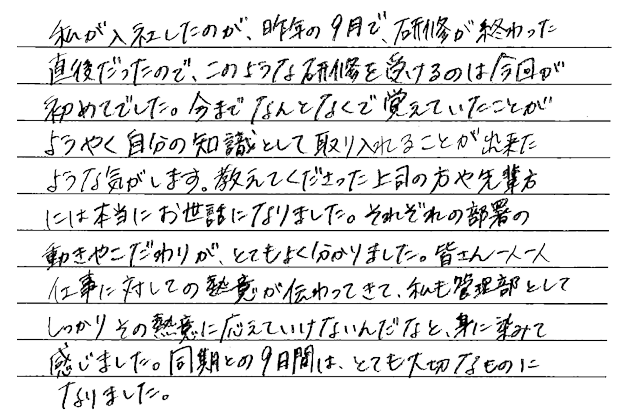 私が入社したのが、昨年の9月で、研修が終わった
直後だったので、このような研修を受けるのは今回が
初めてでした。今までなんとなくで覚えていたことが
ようやく自分の知識として取り入れることが出来た
ような気がします。教えてくださった上司の方や先輩方
には本当にお世話になりました。それぞれの部署の
動きやこだわりが、とてもよく分かりました。皆さん一人一人
仕事に対しての熱意が伝わってきて、私も管理部として
しっかりその熱意に応えていけないんだなと、身に染みて
感じました。同期との9日間は、とても大切なものに
なりました。